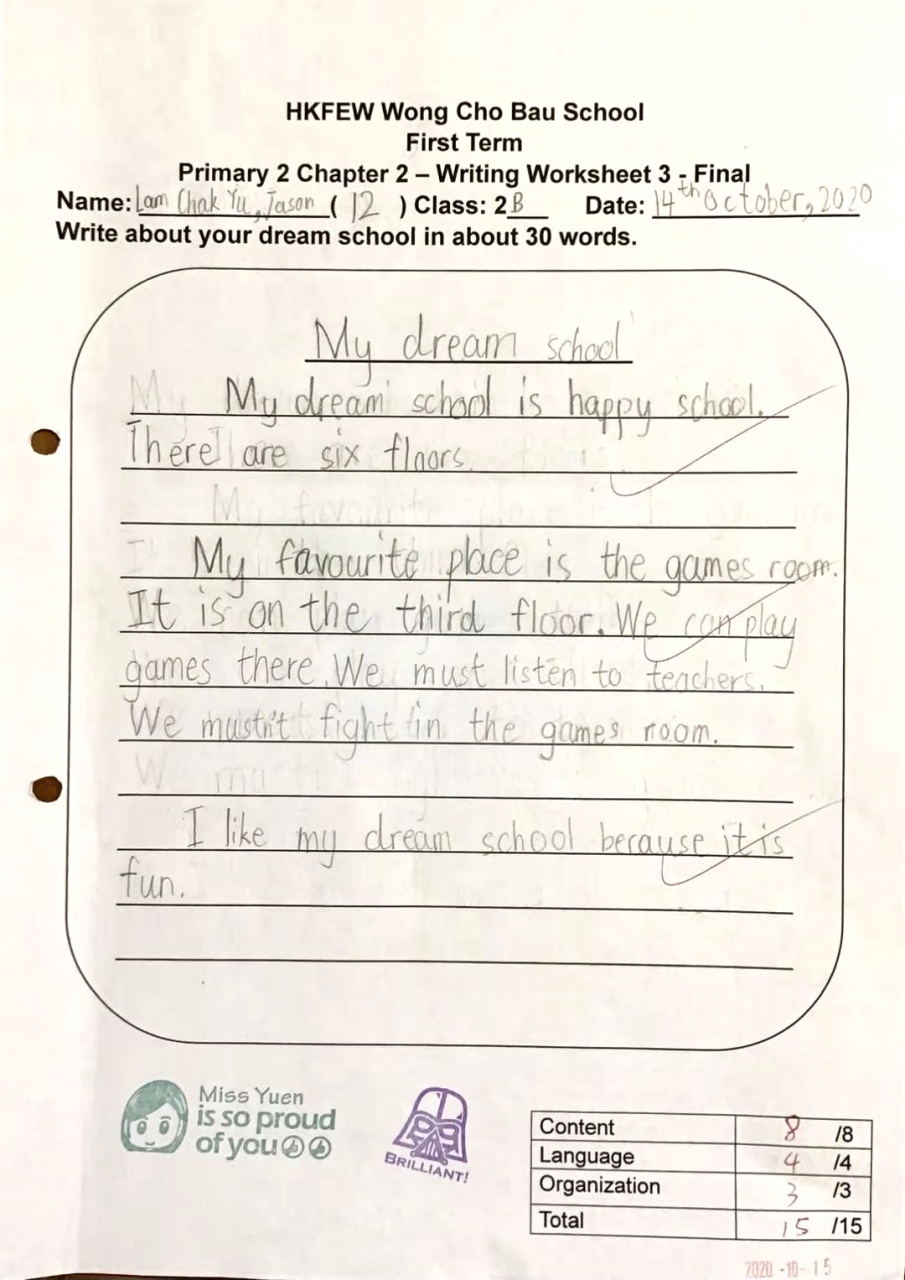 HKFEW Wong Cho Bau School
First Term
Primary 2 Chapter 2 – Writing Worksheet 3 - Final
Name: Lam Chak Yu, Jason ( 12 ) Class: 2B Date: 14th October, 2020
Write about your dream school in about 30 words.
My dream school
My My dream school is happy school.
There are six floors.
My favourite place
It My favourite place is the games room.
It is on the third floor. We can play
games there. We must listen to teachers.
We mustn't fight in the games room.
We mu
I like my dream school because it is
fun.
Miss Yuen
is so proud
of you
BRILLIANT!
Content 8 /8
Language 4 /4
Organization 3 /3
Total 15 /15
2020-10-15